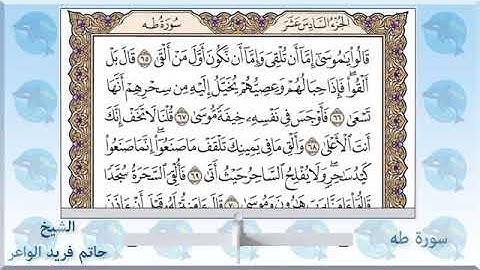 الجزء السادس عشر
سورة طه
قَالُوا۟ يَـٰمُوسَىٰٓ إِمَّآ أَن تُلْقِىَ وَإِمَّآ أَن نَّكُونَ أَوَّلَ مَنْ أَلْقَىٰ ٦٥ قَالَ بَلْ
أَلْقُوا۟ ۖ فَإِذَا حِبَالُهُمْ وَعِصِيُّهُمْ يُخَيَّلُ إِلَيْهِ مِن سِحْرِهِمْ أَنَّهَا
تَسْعَىٰ ٦٦ فَأَوْجَسَ فِى نَفْسِهِۦ خِيفَةً مُّوسَىٰ ٦٧ قُلْنَا لَا تَخَفْ إِنَّكَ
أَنتَ ٱلْأَعْلَىٰ ٦٨ وَأَلْقِ مَا فِى يَمِينِكَ تَلْقَفْ مَا صَنَعُوٓا۟ ۖ إِنَّمَا صَنَعُوا۟
كَيْدُ سَـٰحِرٍ ۖ وَلَا يُفْلِحُ ٱلسَّاحِرُ حَيْثُ أَتَىٰ ٦٩ فَأُلْقِىَ ٱلسَّحَرَةُ سُجَّدًا
قَالُوٓا۟ ءَامَنَّا بِرَبِّ هَـٰرُونَ وَمُوسَىٰ قَالَ ءَامَنتُمْ لَهُۥ قَبْلَ أَنْ ءَاذَنَ
الشيخ
حاتم فريد الواعر
سورة طه